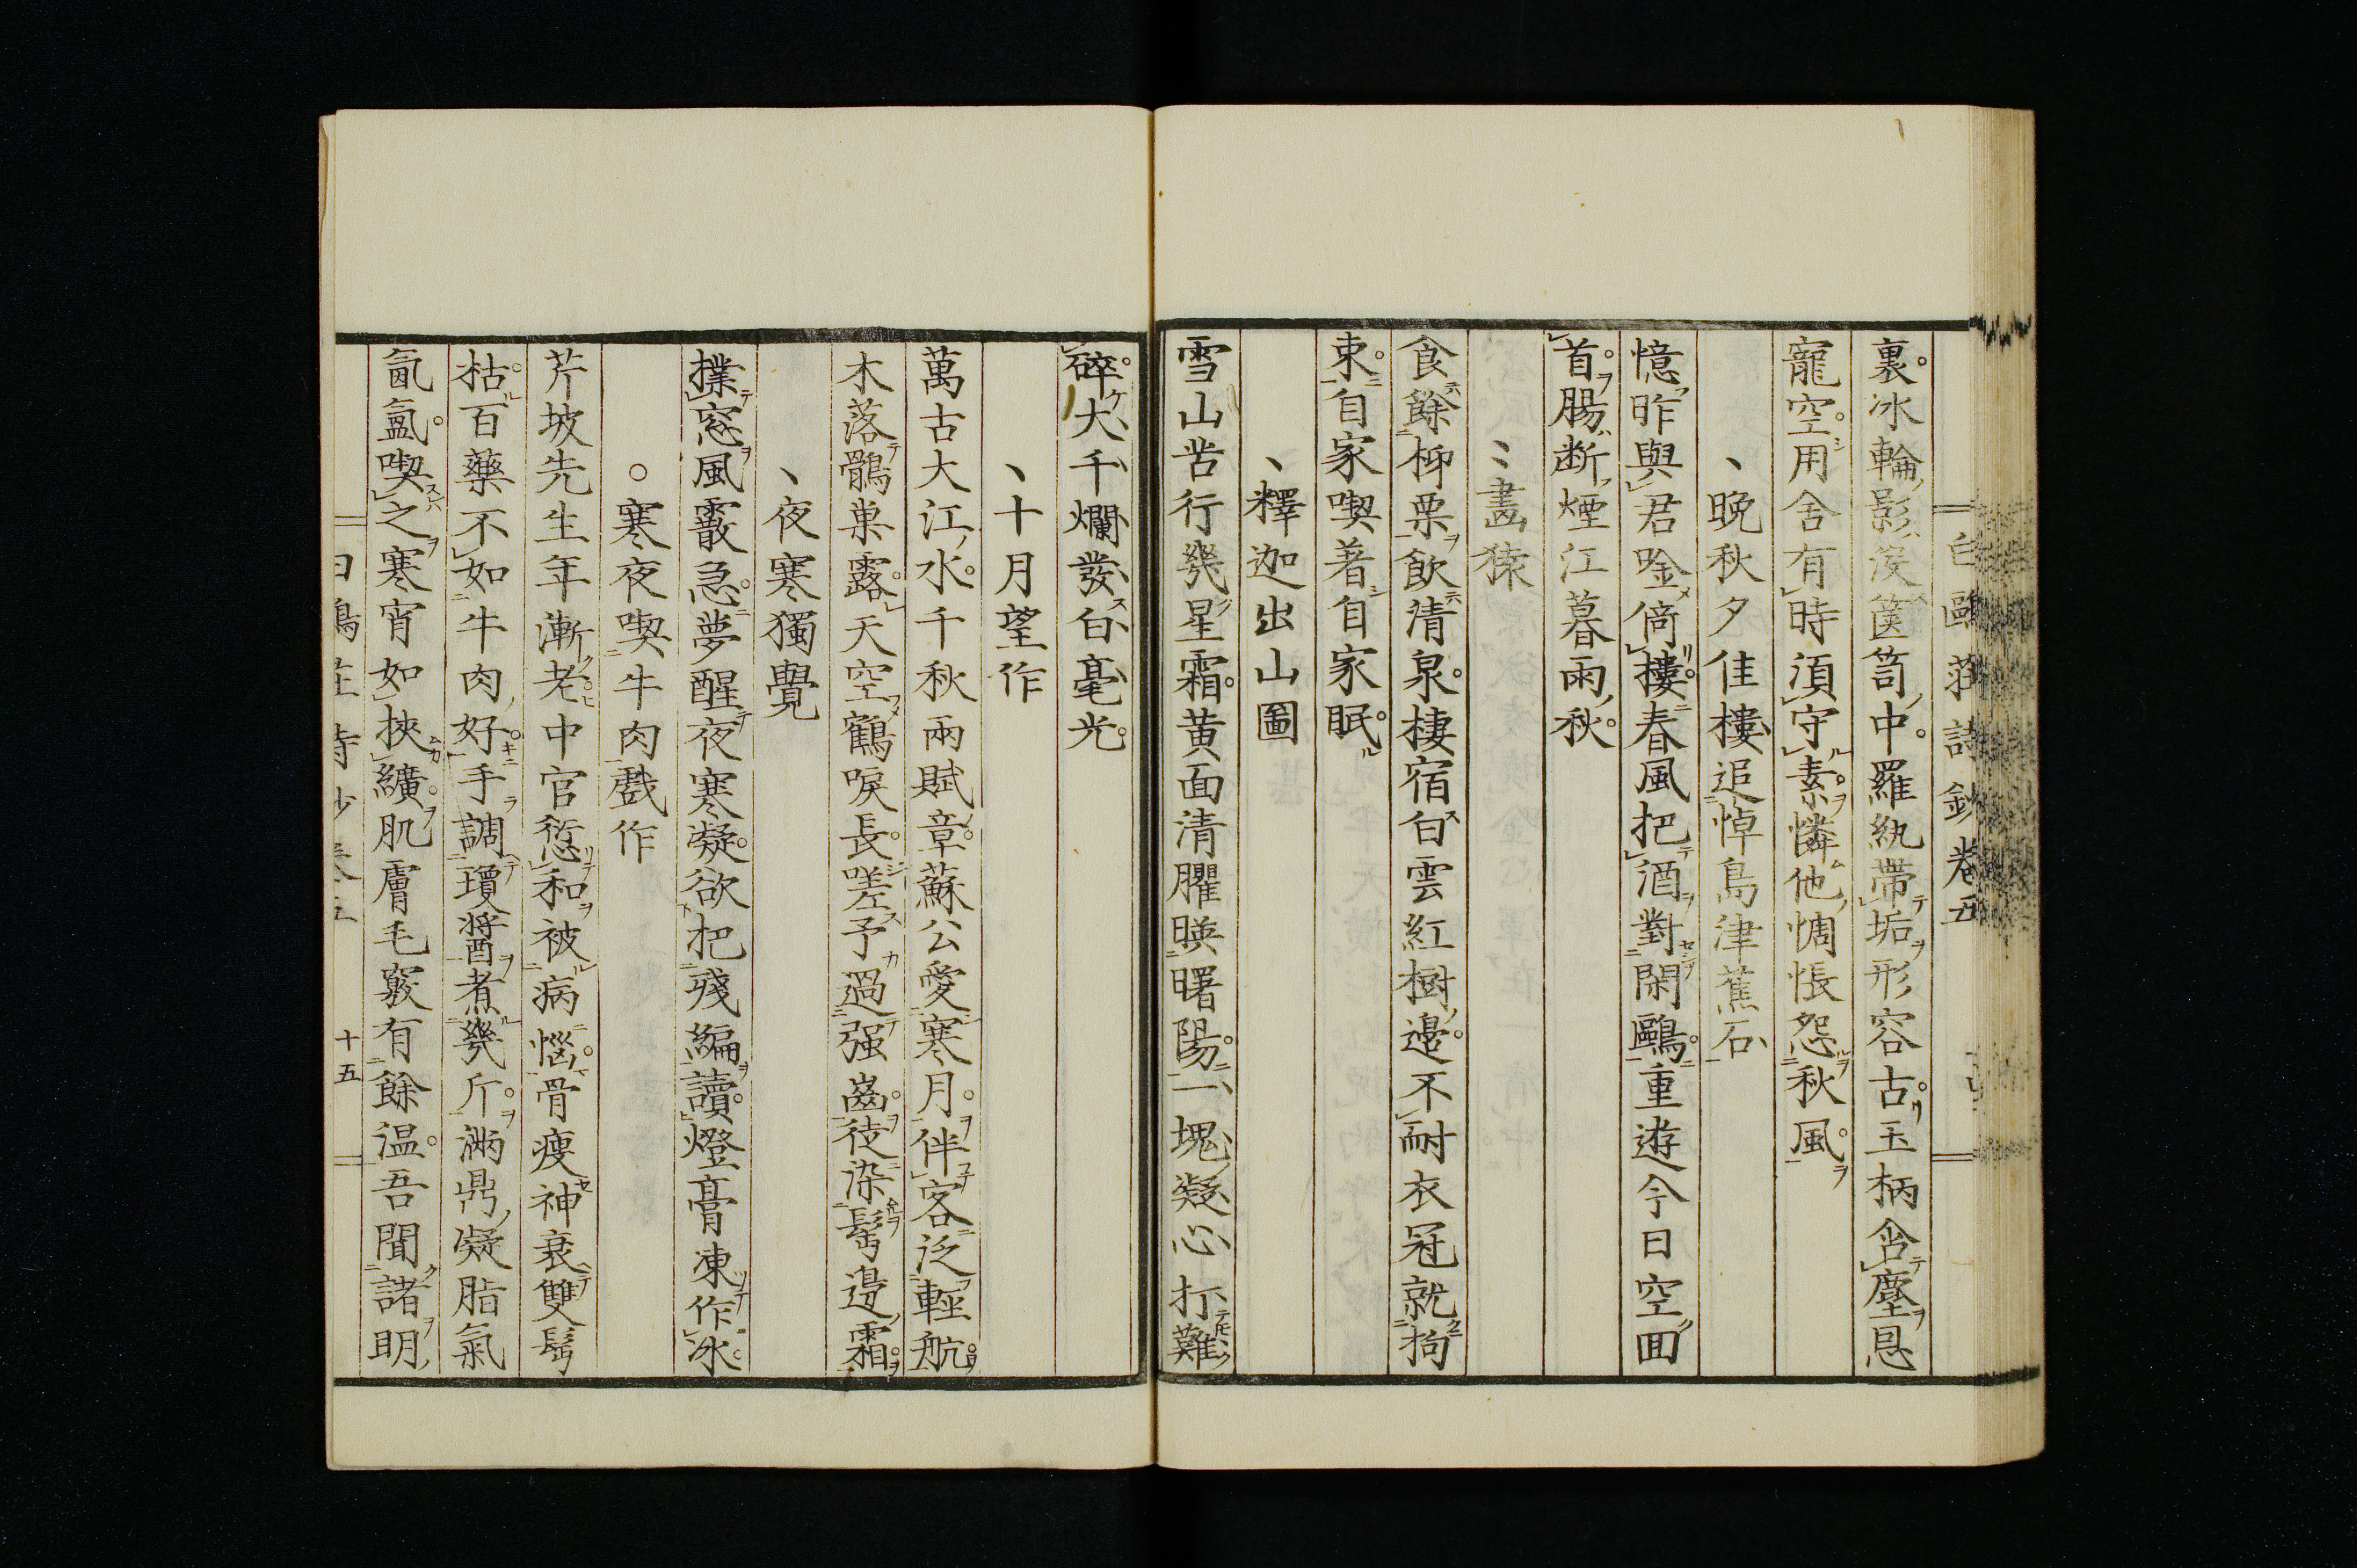 白鷗莊詩鈔卷五
裏冰輪影没篋笥中羅紈帶垢形容古玉柄含塵恩
寵空用舍有時須守素憐他惆悵怨秋風
、晚秋夕佳樓追悼島津蕉石
憶昨與君唫倚樓春風把酒對閑鷗重遊今日空囬
首腸断煙江暮雨秋
、畫猿
食餘枊栗飲清泉棲宿白雲紅樹邊不耐衣冠就拘
束自家喫著自家眠
、釋迦出山圖
雪山苦行幾星霜黄面清臞暎曙陽一塊凝心打難
碎大千爛發白毫光
、十月望作
萬古大江水千秋兩賦章蘇公愛寒月伴客泛輕航
木落鶻巢露天空鶴唳長嗟予過强齒徒染髩邊霜
、夜寒獨覺
撲窓風霰急夢醒夜寒凝欲把殘編讀燈膏凍作冰
○寒夜喫牛肉戲作
芹坡先生年漸老中官愆和被病惱骨瘦神衰雙髩
枯百藥不如牛肉好手調瓊醬煮幾斤滿鼎凝脂氣
氤氳喫之寒宵如挾纊肌膚毛竅有餘温吾聞諸明
十五